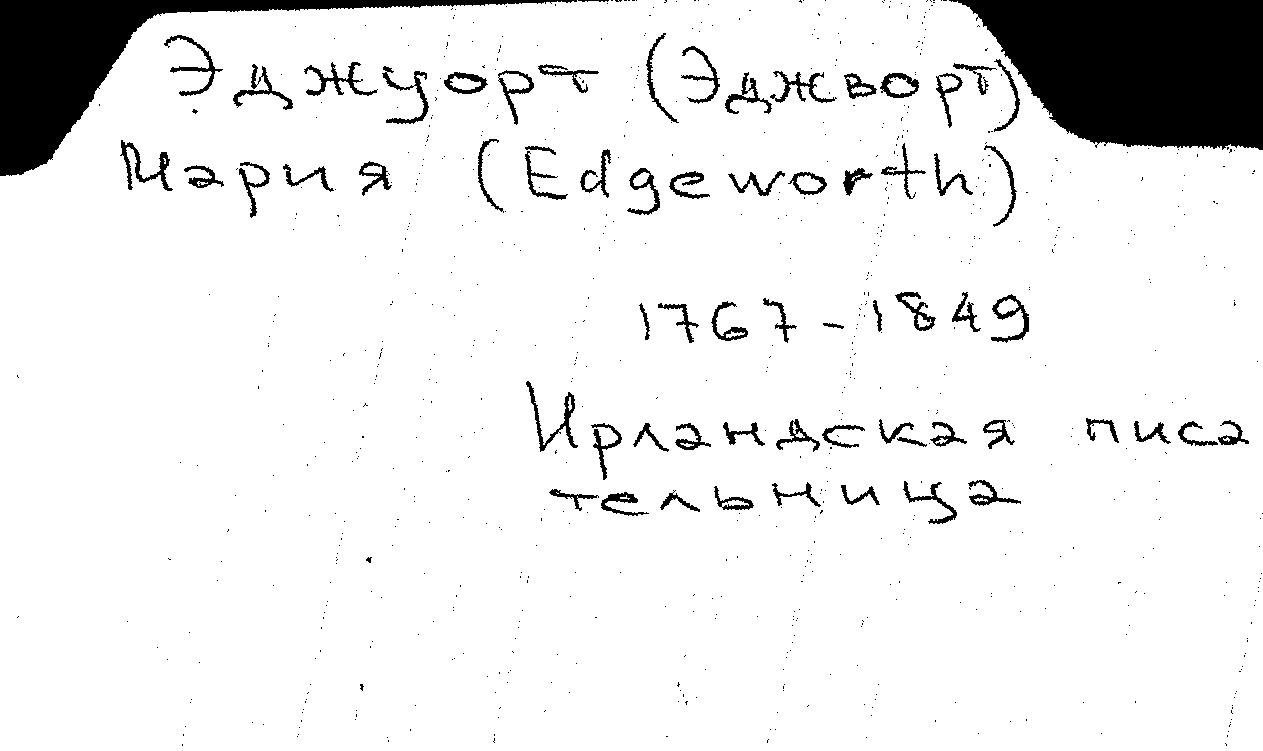 Эджуорт (Эджворт)
Мария (Edgeworth)
1767-1849
Ирландская писа
тельница